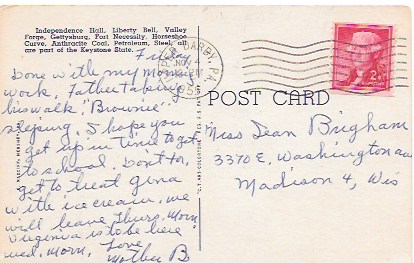 Independence Hall, Liberty Bell, Valley
Forge, Gettysburg, Fort Necessity, Horseshoe
Curve, Anthracite Coal, Petroleum, Steel, all
are part of the Keystone State.
Friday
Done with my morning
work, Father taking
his walk, "Brownie"
sleeping, I hope you
get up in time to get
to school. Don't to,
get to treat Gina
with ice cream, we
will leave thurs. morn,
Virginia is to be here
wed. morn. Love
Mother B
DARBY, PA.
NOV 4
POST CARD
2¢
Miss Jean Brigham
3370 E, Washington ave
Madison 4, Wis